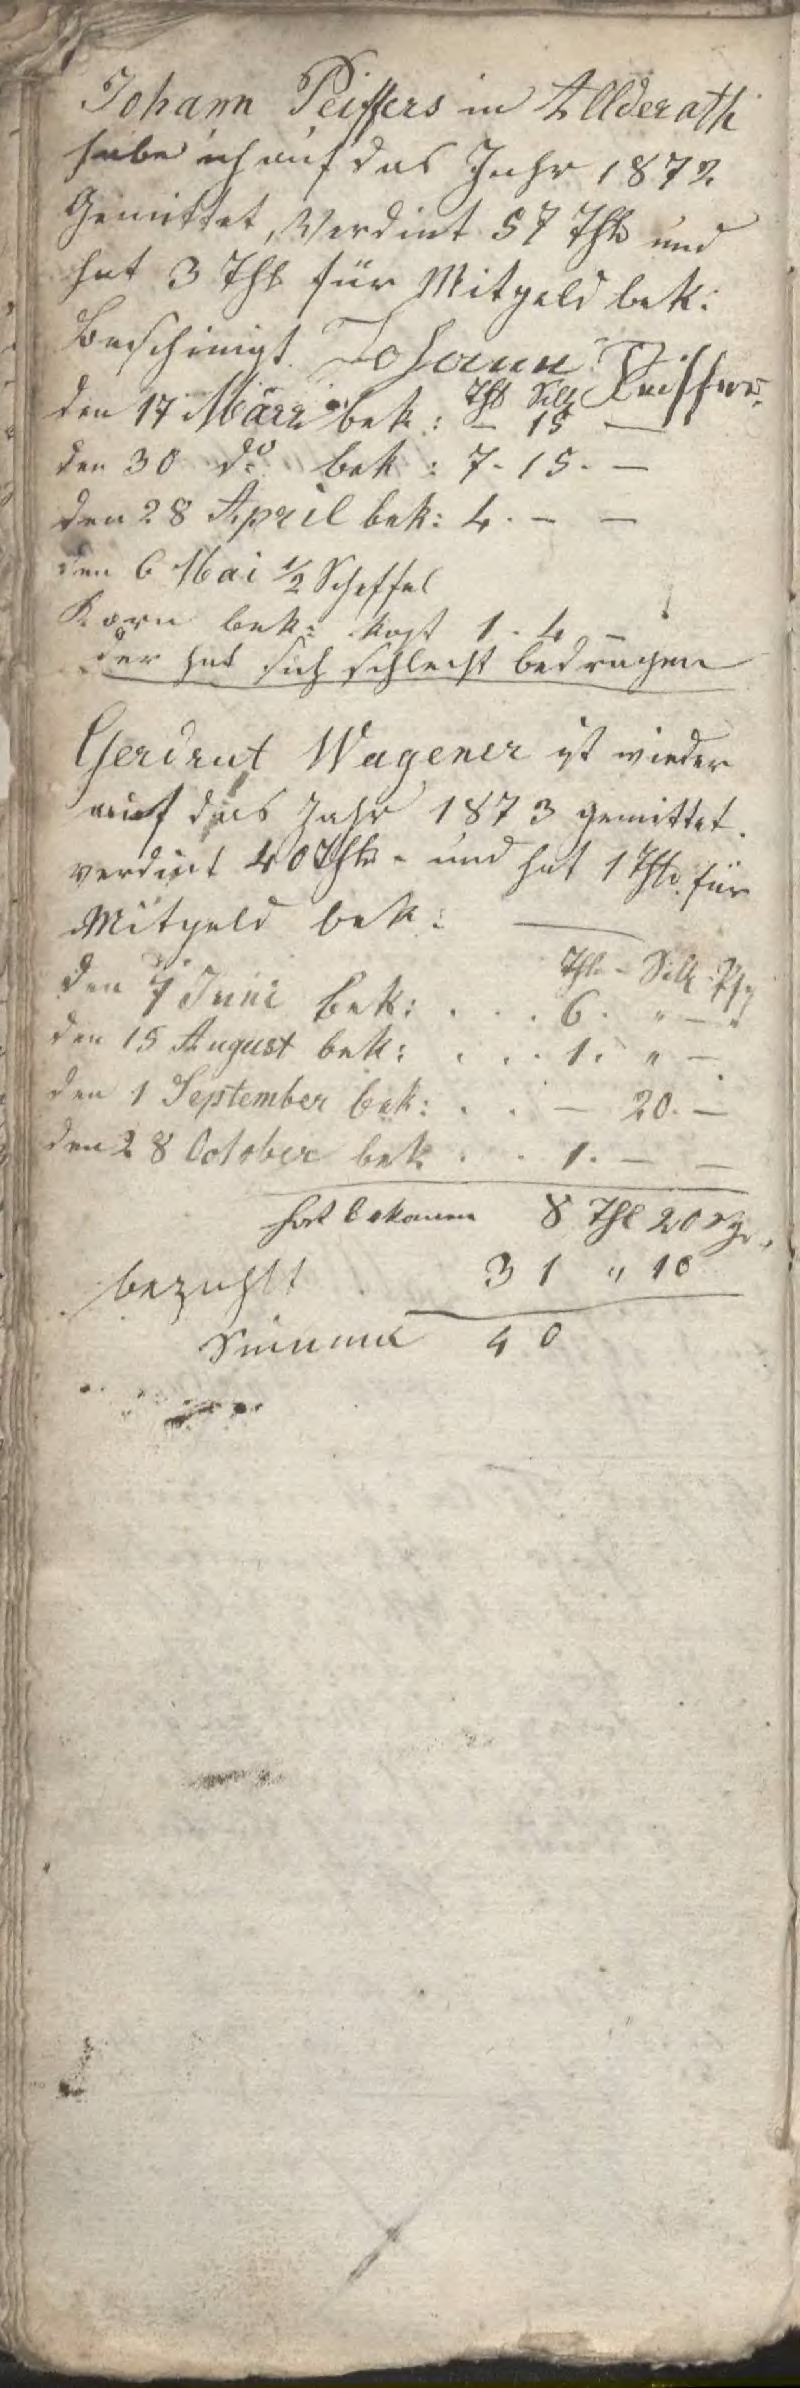 Johann Peiffers in Allderath
habe ich auf das Jahr 1872
Gemittet, Verdint 57 Thlr und
hat 3 Thl für Mitgeld bek:
Bescheinigt Johann Peiffers.
Thl Silg
den 17 März bek: – 15 —
den 30 do bek: 7 - 15 . —
den 28 April bek: 4 . – —
den 6 Mai ½ Scheffel
Korn bek: kost 1 . 4 –
der hat sich schlecht bedragen
Gerdrut Wagener ist wieder
auf das Jahr 1873 gemittet.
verdint 40 Thlr - und hat 1 Thlr. für
Mitgeld bek: —
Thl. – Silg. Pfg
den 7 Juni bek: . . . 6 . " – "
den 15 August bek: . . . 1 . " – .
den 1 September bek: . . – 20. —
den 28 October bek . . 1. — —
hat bekomen 8 Thl 20 Sgr.
bezahlt 31 " 10
Summa 40